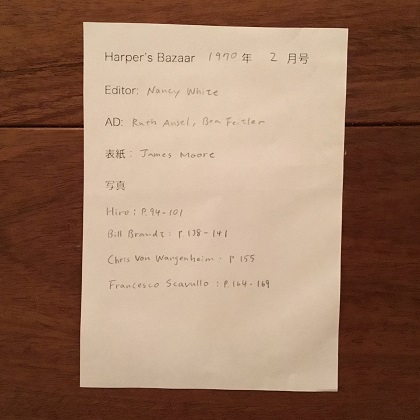 Harper's Bazaar 1970年 2月号
Editor: Nancy White
AD: Ruth Ansel, Bea Feitler
表紙: James Moore
写真
Hiro: P.94-101
Bill Brandt: P 138-141
Chris Von Wangenheim: P 155
Francesco Scavullo: P.164-169